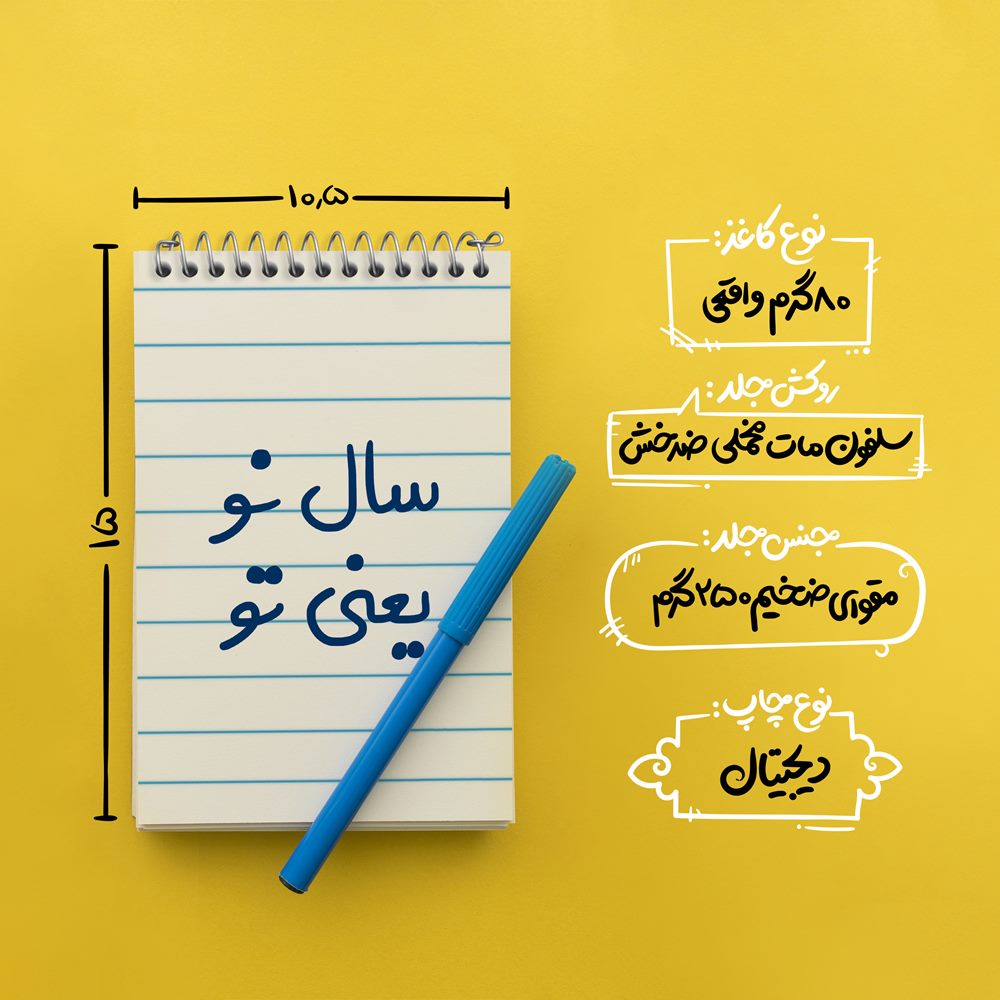 ۱۰٫۵
۱۵
سال نو
یعنی تو
نوع کاغذ:
۸۰گرم واقعی
روکش جلد:
سلفون مات مخملی ضدخش
جنس جلد:
مقوای ضخیم ۲۵۰گرم
نوع چاپ:
دیجیتال